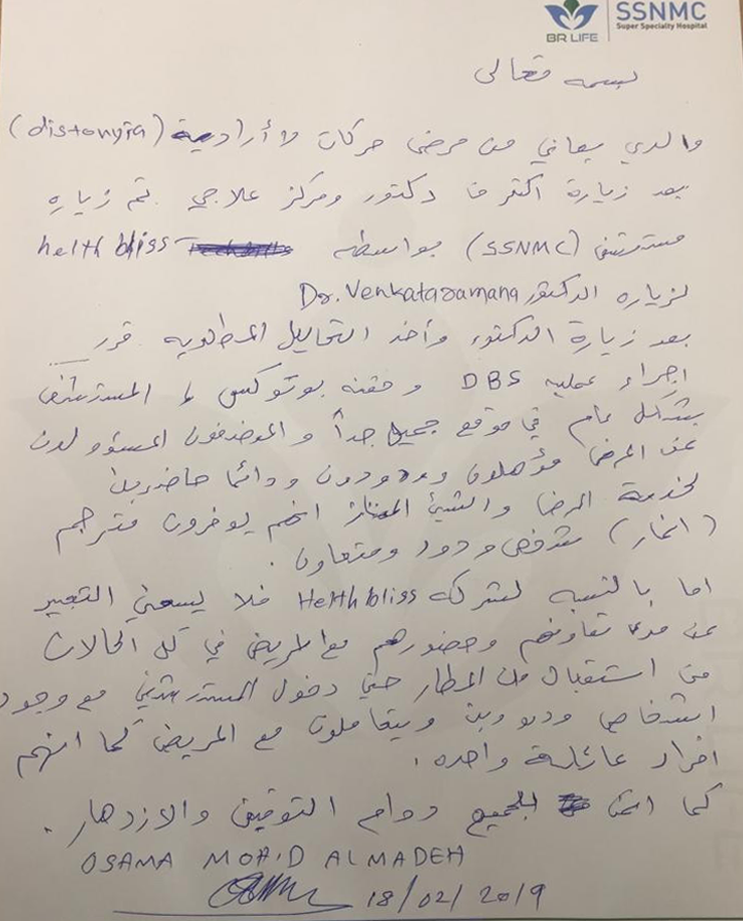 BR LIFE
SSNMC
Super Specialty Hospital
بسمه تعالى
والدي يعاني من مرض حركات لا أرادية (distonyia)
بعد زيارة اكثر من دكتور ومركز علاجي تم زياره
مستشفى (SSNMC) بواسطه helth bliss
لزياره الدكتور Dr. Venkataramana
بعد زيارة الدكتور وأخذ التحاليل المطلوبه قرر
اجراء عمليه DBS وحقنه بوتوكس المستشفى
بشكل عام في موقع جميل جداً والموضفون المسؤولون
عن المرضا مؤهلون وودودون ودائما حاضرين
لخدمة المرضا والشيئ الممتاز انهم يوفرون مترجم
(انمار) شخص ودود ومتعاون.
اما بالنسبه لشركه Helth bliss فلا يسعني التعبير
عن مدى تعاونهم وحضورهم مع المريض في كل الحالات
من استقبال من المطار حتى دخول المستشفى مع وجود
اشخاص ودودين ويتعاملون مع المريض كما انهم
افراد عائلة واحده.
كما اتمنى للجميع دوام التوفيق والازدهار.
OSAMA MOHD ALMADEH
18/02/2019